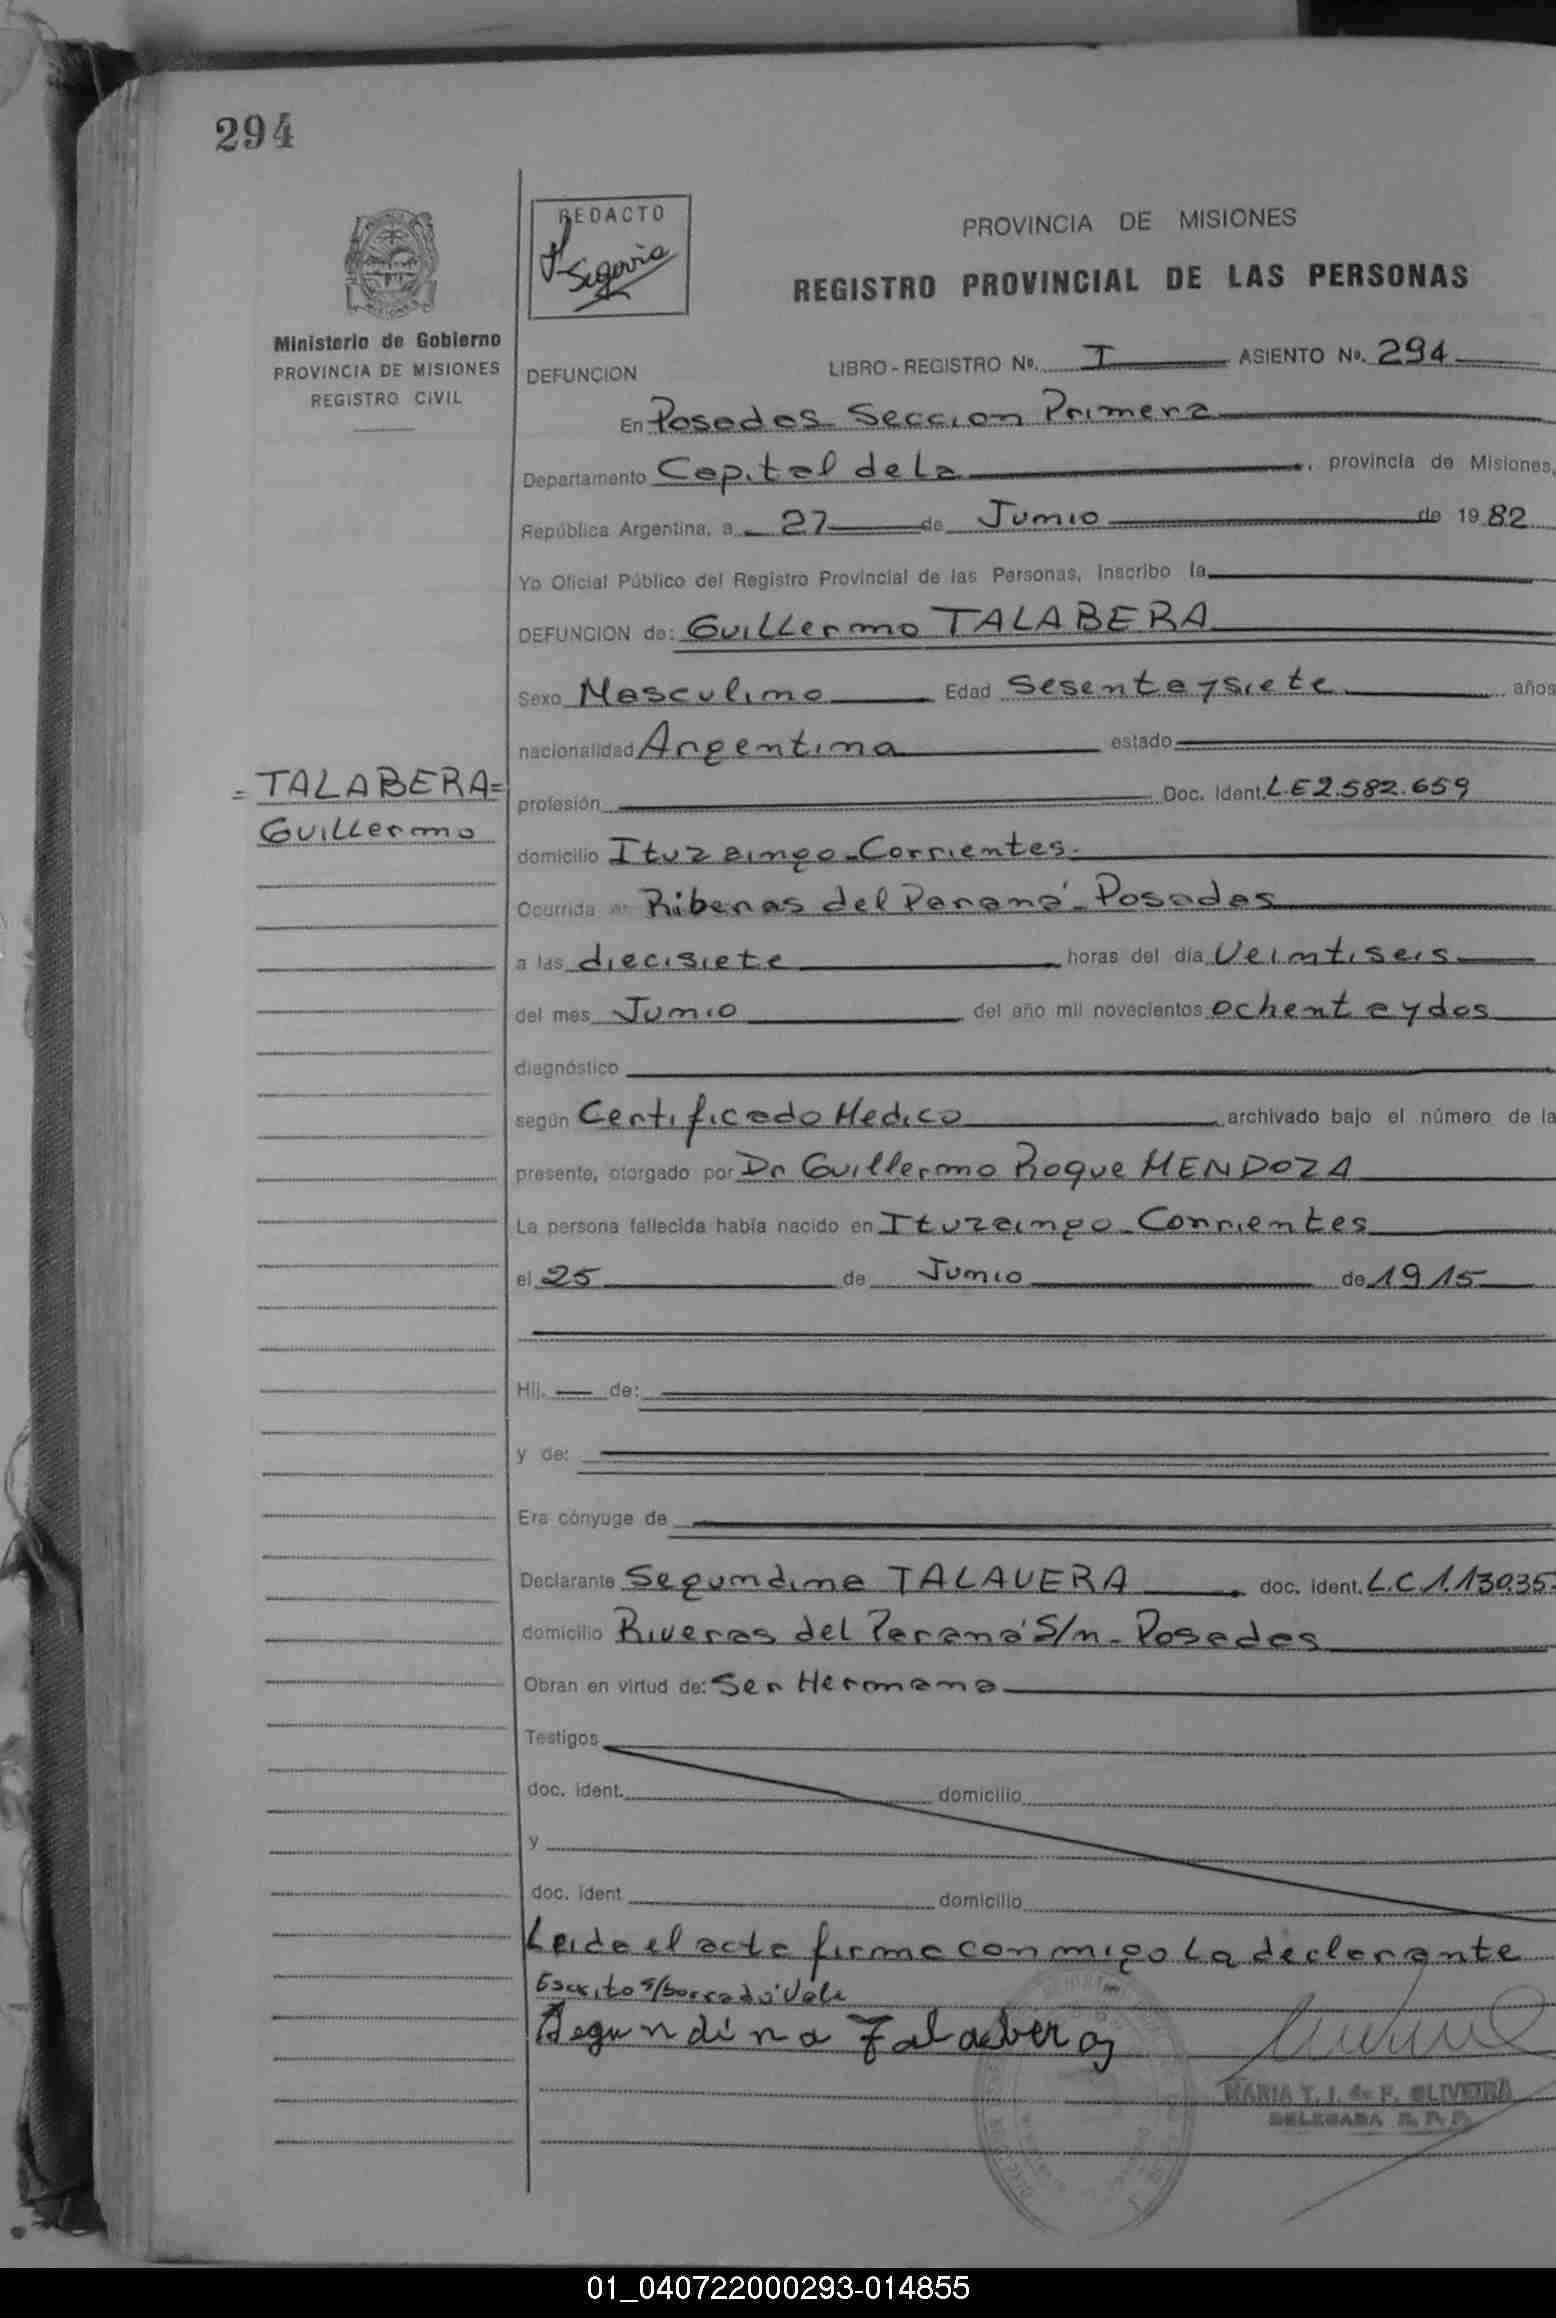 294
REDACTO
Segovia
PROVINCIA DE MISIONES
REGISTRO PROVINCIAL DE LAS PERSONAS
Ministerio de Gobierno
PROVINCIA DE MISIONES
REGISTRO CIVIL
DEFUNCION LIBRO - REGISTRO Nº. I ASIENTO Nº. 294
En Posadas Seccion Primera
Departamento Capital de La , provincia de Misiones,
República Argentina, a 27 de Junio de 1982
Yo Oficial Público del Registro Provincial de las Personas, inscribo la
DEFUNCION de: Guillermo TALABERA
Sexo Masculino Edad Sesenta y siete años
nacionalidad Argentina estado
= TALABERA =
Guillermo
profesión Doc. Ident. L.E 2.582.659
domicilio Ituzaingo - Corrientes.
Ocurrida en Riberas del Paraná - Posadas
a las diecisiete horas del día Veintiseis
del mes Junio del año mil novecientos ochenta y dos
diagnóstico
según Certificado Medico archivado bajo el número de la
presente, otorgado por Dr Guillermo Roque MENDOZA
La persona fallecida había nacido en Ituzaingo - Corrientes
el 25 de Junio de 1915
Hij. de:
y de:
Era cónyuge de
Declarante Segundina TALAVERA doc. ident. L.C 1.130.35
domicilio Riveras del Paraná S/n - Posadas
Obran en virtud de: Ser Hermana
Testigos
doc. ident. domicilio
y
doc. ident domicilio
Leida el acta firma conmigo La declarante
Escrito s/borrado "Vale
Segundina Talabera
MARIA T. I. de F. OLIVEIRA
DELEGADA R. P. P.
01_040722000293-014855